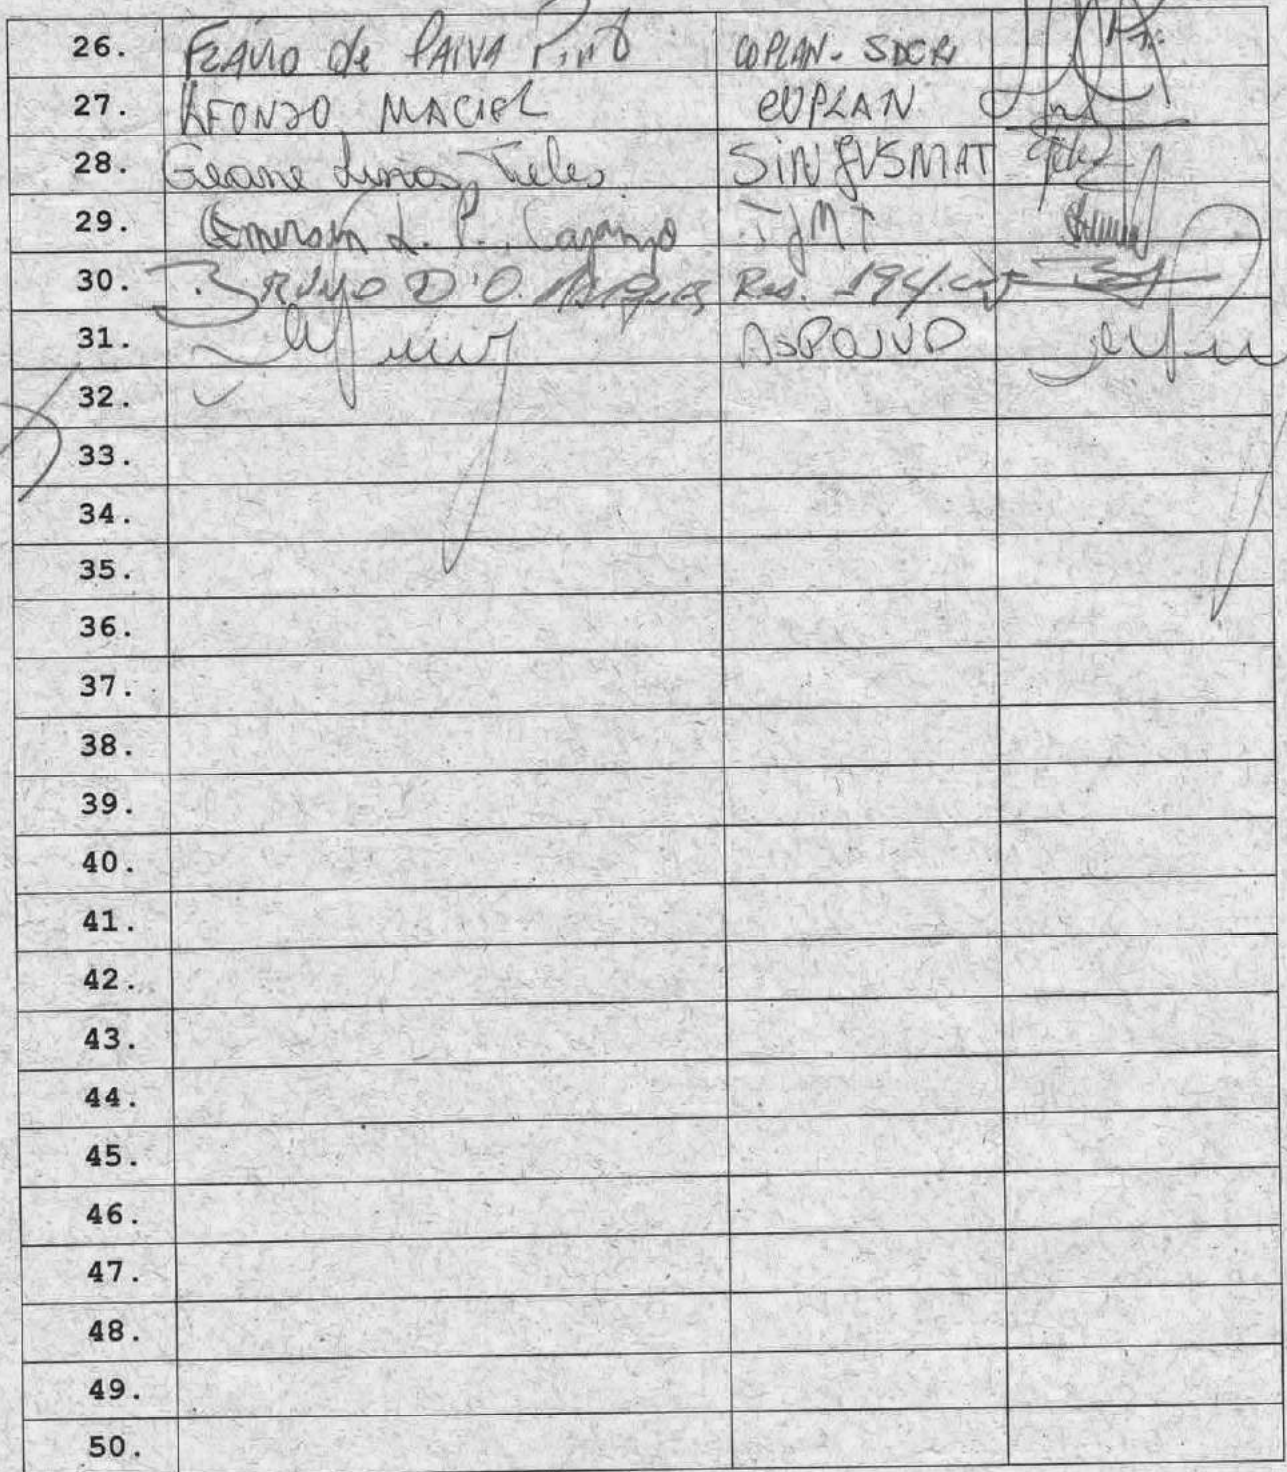 26. FLAVIO de PAIVA Pinto COPLAN - SDCR
27. AFONSO MACIEL COPLAN
28. Geane Lina Teles SINJUSMAT
29. Emerson L. P. Cajango TJMT
30. BRUNO D'O. MARQUES Res. 194.CNJ
31.
32.
33.
34.
35.
36.
37.
38.
39.
40.
41.
42.
43.
44.
45.
46.
47.
48.
49.
50.